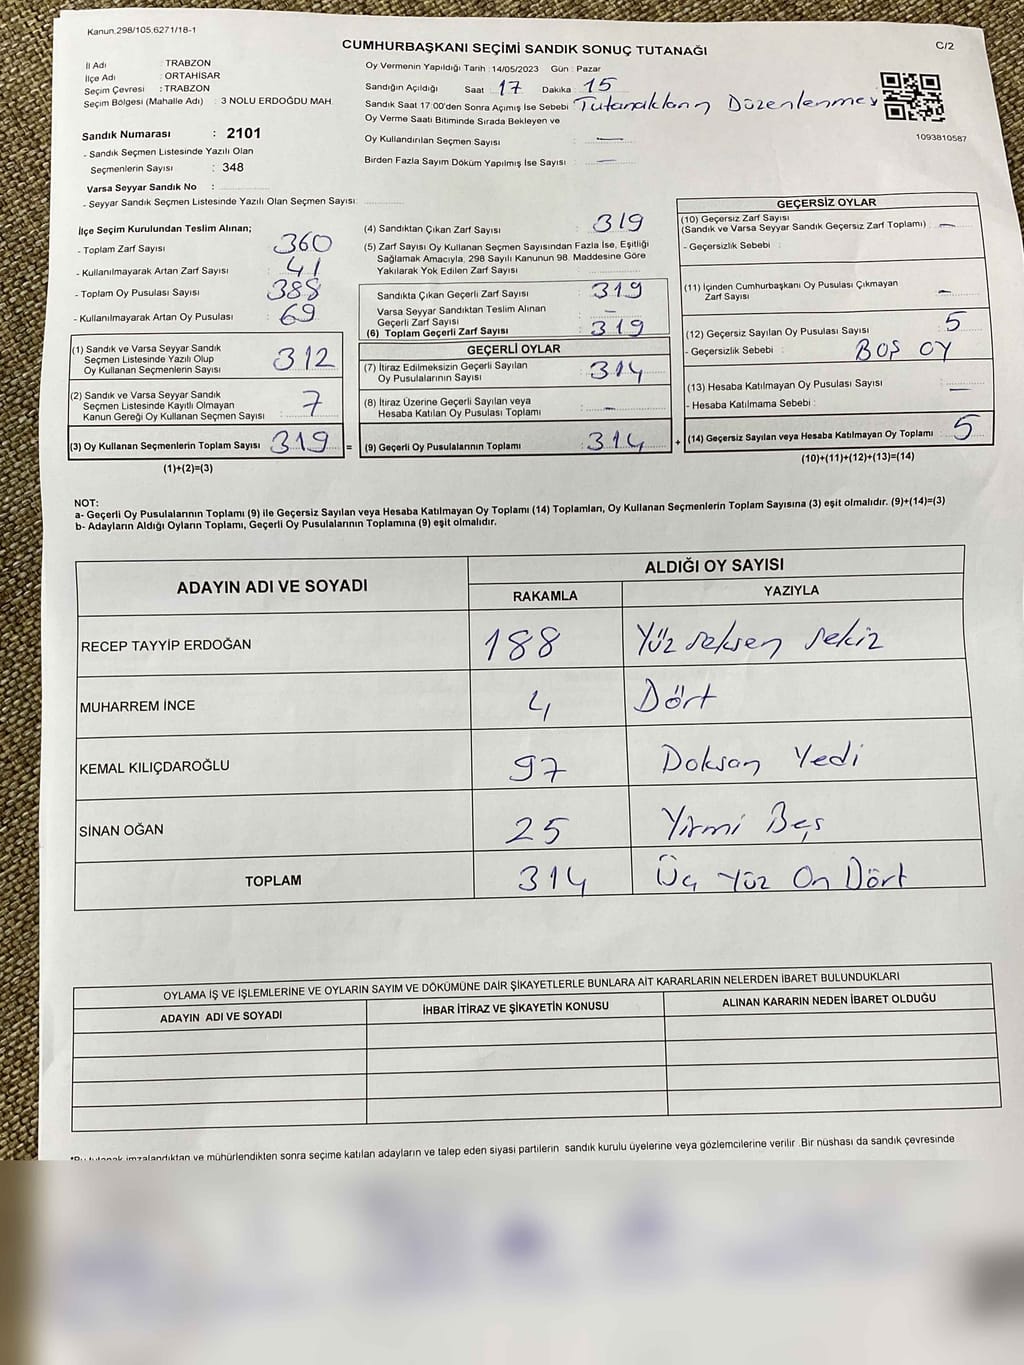 Kanun.298/105.6271/18-1
C/2
CUMHURBAŞKANI SEÇİMİ SANDIK SONUÇ TUTANAĞI
İl Adı : TRABZON
İlçe Adı : ORTAHİSAR
Seçim Çevresi : TRABZON
Seçim Bölgesi (Mahalle Adı) : 3 NOLU ERDOĞDU MAH.
Sandık Numarası : 2101
- Sandık Seçmen Listesinde Yazılı Olan
Seçmenlerin Sayısı : 348
Varsa Seyyar Sandık No :
- Seyyar Sandık Seçmen Listesinde Yazılı Olan Seçmen Sayısı:
Oy Vermenin Yapıldığı Tarih : 14/05/2023 Gün : Pazar
Sandığın Açıldığı Saat : 17 Dakika : 15
Sandık Saat 17:00'den Sonra Açımış İse Sebebi : Tutanakların Düzenlenmesi
Oy Verme Saati Bitiminde Sırada Bekleyen ve
Oy Kullandırılan Seçmen Sayısı : —
Birden Fazla Sayım Döküm Yapılmış İse Sayısı : —
1093810587
İlçe Seçim Kurulundan Teslim Alınan;
- Toplam Zarf Sayısı : 360
- Kullanılmayarak Artan Zarf Sayısı : 41
- Toplam Oy Pusulası Sayısı : 388
- Kullanılmayarak Artan Oy Pusulası : 69
(1) Sandık ve Varsa Seyyar Sandık
Seçmen Listesinde Yazılı Olup
Oy Kullanan Seçmenlerin Sayısı : 312
(2) Sandık ve Varsa Seyyar Sandık
Seçmen Listesinde Kayıtlı Olmayan
Kanun Gereği Oy Kullanan Seçmen Sayısı : 7
(3) Oy Kullanan Seçmenlerin Toplam Sayısı : 319 =
(1)+(2)=(3)
(4) Sandıktan Çıkan Zarf Sayısı : 319
(5) Zarf Sayısı Oy Kullanan Seçmen Sayısından Fazla İse, Eşitliği
Sağlamak Amacıyla, 298 Sayılı Kanunun 98. Maddesine Göre
Yakılarak Yok Edilen Zarf Sayısı :
Sandıkta Çıkan Geçerli Zarf Sayısı : 319
Varsa Seyyar Sandıktan Teslim Alınan
Geçerli Zarf Sayısı : —
(6) Toplam Geçerli Zarf Sayısı : 319
GEÇERLİ OYLAR
(7) İtiraz Edilmeksizin Geçerli Sayılan
Oy Pusulalarının Sayısı : 314
(8) İtiraz Üzerine Geçerli Sayılan veya
Hesaba Katılan Oy Pusulası Toplamı : —
(9) Geçerli Oy Pusulalarının Toplamı : 314 +
GEÇERSİZ OYLAR
(10) Geçersiz Zarf Sayısı
(Sandık ve Varsa Seyyar Sandık Geçersiz Zarf Toplamı) : —
- Geçersizlik Sebebi :
(11) İçinden Cumhurbaşkanı Oy Pusulası Çıkmayan
Zarf Sayısı : —
(12) Geçersiz Sayılan Oy Pusulası Sayısı : 5
- Geçersizlik Sebebi : BOŞ OY
(13) Hesaba Katılmayan Oy Pusulası Sayısı : —
- Hesaba Katılmama Sebebi :
(14) Geçersiz Sayılan veya Hesaba Katılmayan Oy Toplamı : 5
(10)+(11)+(12)+(13)=(14)
NOT:
a- Geçerli Oy Pusulalarının Toplamı (9) ile Geçersiz Sayılan veya Hesaba Katılmayan Oy Toplamı (14) Toplamları, Oy Kullanan Seçmenlerin Toplam Sayısına (3) eşit olmalıdır. (9)+(14)=(3)
b- Adayların Aldığı Oyların Toplamı, Geçerli Oy Pusulalarının Toplamına (9) eşit olmalıdır.
ADAYIN ADI VE SOYADI
ALDIĞI OY SAYISI
RAKAMLA YAZIYLA
RECEP TAYYİP ERDOĞAN 188 Yüz seksen sekiz
MUHARREM İNCE 4 Dört
KEMAL KILIÇDAROĞLU 97 Doksan Yedi
SİNAN OĞAN 25 Yirmi Beş
TOPLAM 314 Üç Yüz On Dört
OYLAMA İŞ VE İŞLEMLERİNE VE OYLARIN SAYIM VE DÖKÜMÜNE DAİR ŞİKAYETLERLE BUNLARA AİT KARARLARIN NELERDEN İBARET BULUNDUKLARI
ADAYIN ADI VE SOYADI İHBAR İTİRAZ VE ŞİKAYETİN KONUSU ALINAN KARARIN NEDEN İBARET OLDUĞU
*Bu tutanak imzalandıktan ve mühürlendikten sonra seçime katılan adayların ve talep eden siyasi partilerin sandık kurulu üyelerine veya gözlemcilerine verilir .Bir nüshası da sandık çevresinde